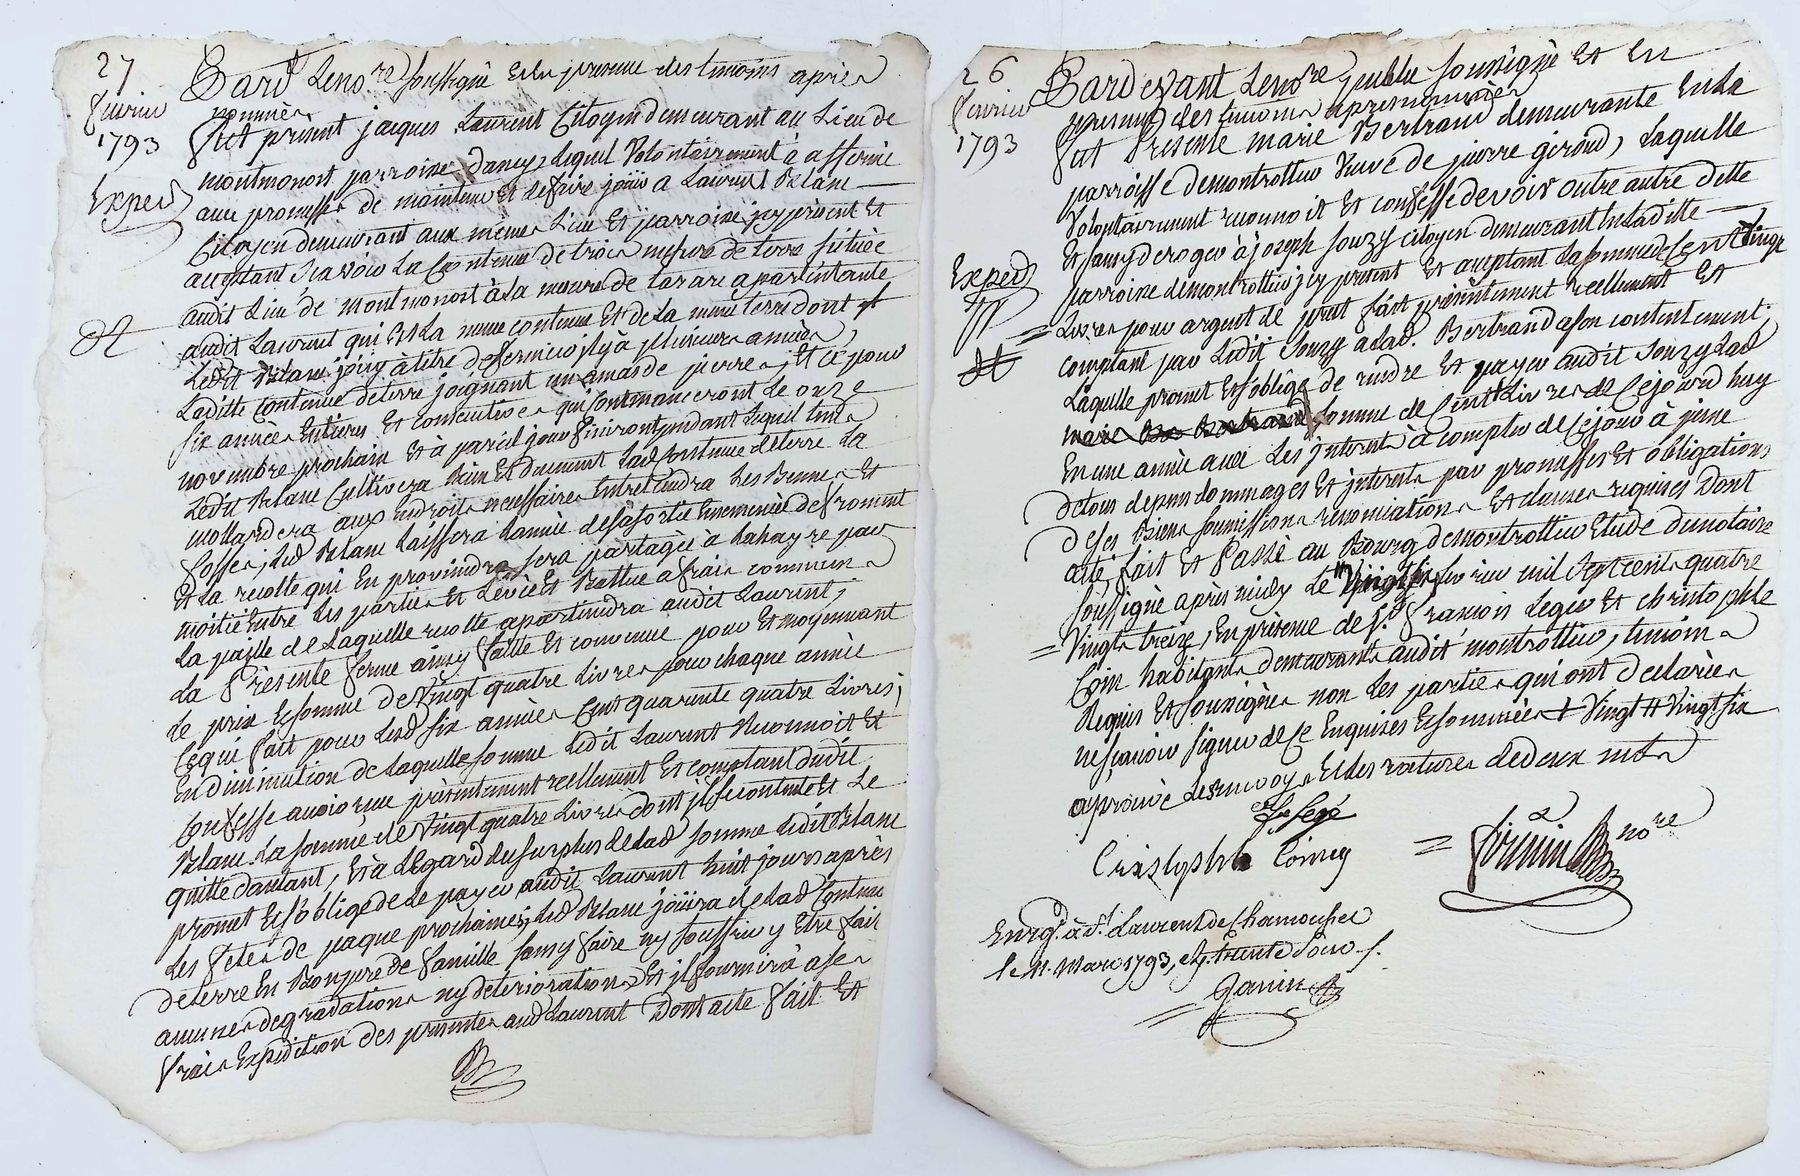 27
fevrier
1793
Exped
Pard.t Leno.re soussigné et en presence des temoins après
nommés
fut present jacques Laurent Citoyen demeurant au Lieu de
montmonost parroisse Dancy, lequel volontairement à affermé
avec promesse de maintenir et de faire jouir a Laurent Blanc
Citoyen demeurant aux memes Lieu Et parroisse jcy present et
acceptant Scavoir La Contenue de trois mesure de terre scituée
audit Lieu de montmonost à la mesure de tarare apartenante
audit Laurent qui est La meme contenue Et de La meme terre dont
Ledit Blanc jouy à titre de ferme icy il y à plusieurs années,
Laditte contenue de terre joignant un amas de pierres, Et ce pour
six années Entieres Et consecutives qui Commanceront Le onze
novembre prochain et à pareil jour finiront pendant lequel tems
Ledit Blanc Cultivera Bien Et Duement Lad contenue de terre La
aux Endroits necessaires Entretiendra Les
fosses, Led Blanc Laissera Lannée de sa sortie Enemencé de froment
Et La recolte qui En proviendra sera partagée à par
moitié Entre Les parties Et Levée Et Battue a frais communs
La paille de Laquelle recolte apartiendra audit Laurent;
La Présente ferme ainsy faitte Et convenue pour Et moyennant
Le prix Et somme de vingt quatre Livres pour chaque année
Ce qui fait pour Lesd six années Cent quarante quatre Livres;
En diminution de Laquelle somme Ledit Laurent Reconnoit Et
Confesse avoir reçu présentement reellement Et comptant dudit
Blanc La somme de vingt quatre Livres dont il se contente Et Le
quitte dautant, Et à Légard du surplus de lad somme Ledit Blanc
promet Et s'oblige de Le payer audit Laurent huit jours après
Les fetes de paque prochaines; Led Blanc jouira de Lad Contenue
de terre En Bon pere de famille sans y faire ny souffrir y Etre fait
aucunes degradations ny deteriorations Et il fournira a ses
frais Expedition des presentes aud Laurent Dont acte fait Et
26
fevrier
1793
Exped
Pardevant Leno.re public soussigné Et En
presence des temoins apres nommés
fut Presente marie Bertrand demeurante En La
parroisse de montrottier veuve de pierre giroud, Laquelle
volontairement reconnoit Et confesse devoir outre autre dette
Et sans y deroger à joseph souzy Citoyen demeurant En Laditte
parroisse de montrottier jcy present Et acceptant La somme de Cent vingt
Livres pour argent de pret fait présentement reellement Et
comptant par Ledit souzy a Lad. Bertrand a son contentement,
Laquelle promet Et s'oblige de rendre Et payer audit souzy Lad
somme de Cent Livres de Cejourd'huy
En une année avec Les jnterets à compter de Ce jour à peine
de tous depens dommages Et jnterets par promesses Et obligations
de ses Biens soumissions renonciations Et clauses requises Dont
acte fait Et Passé au Bourg de montrottier Etude du notaire
soussigné après midy Le vingt six fevrier mil sept cent quatre
vingt treize, En présence de s.r françois Leger Et christophle
Coin habitants demeurants audit montrottier, temoins
Requis Et soussignés non Les parties qui ont declarées
ne scavoir signer de Ce Enquises Et sommées + vingt # vingt six
aprouvé Les renvoys Et des ratures de deux mots
Christophle
no.re
Enrg.é à S.t Laurent de Chamousset
le 11. Mars 1793, reçu trente sous.
Janin